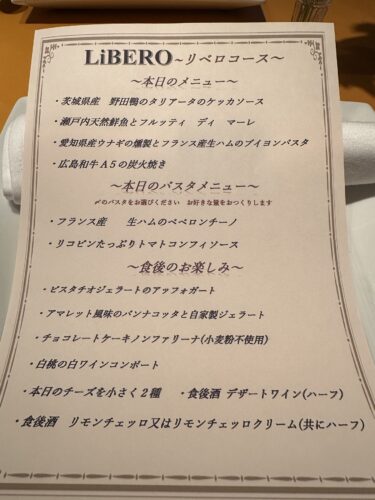 LiBERO～リベロコース～
～本日のメニュー～
・茨城県産　野田鴨のタリアータのケッカソース
・瀬戸内天然鮮魚とフルッティ　ディ　マーレ
・愛知県産ウナギの燻製とフランス産生ハムのブイヨンパスタ
・広島和牛A5の炭火焼き
～本日のパスタメニュー～
〆のパスタをお選びください　お好きな量をおつくりします
・フランス産　　生ハムのペペロンチーノ
・リコピンたっぷりトマトコンフィソース
～食後のお楽しみ～
・ピスタチオジェラートのアッフォガート
・アマレット風味のパンナコッタと自家製ジェラート
・チョコレートケーキノンファリーナ(小麦粉不使用)
・白桃の白ワインコンポート
・本日のチーズを小さく２種　・食後酒 デザートワイン(ハーフ)
・食後酒　リモンチェッロ又はリモンチェッロクリーム(共にハーフ)